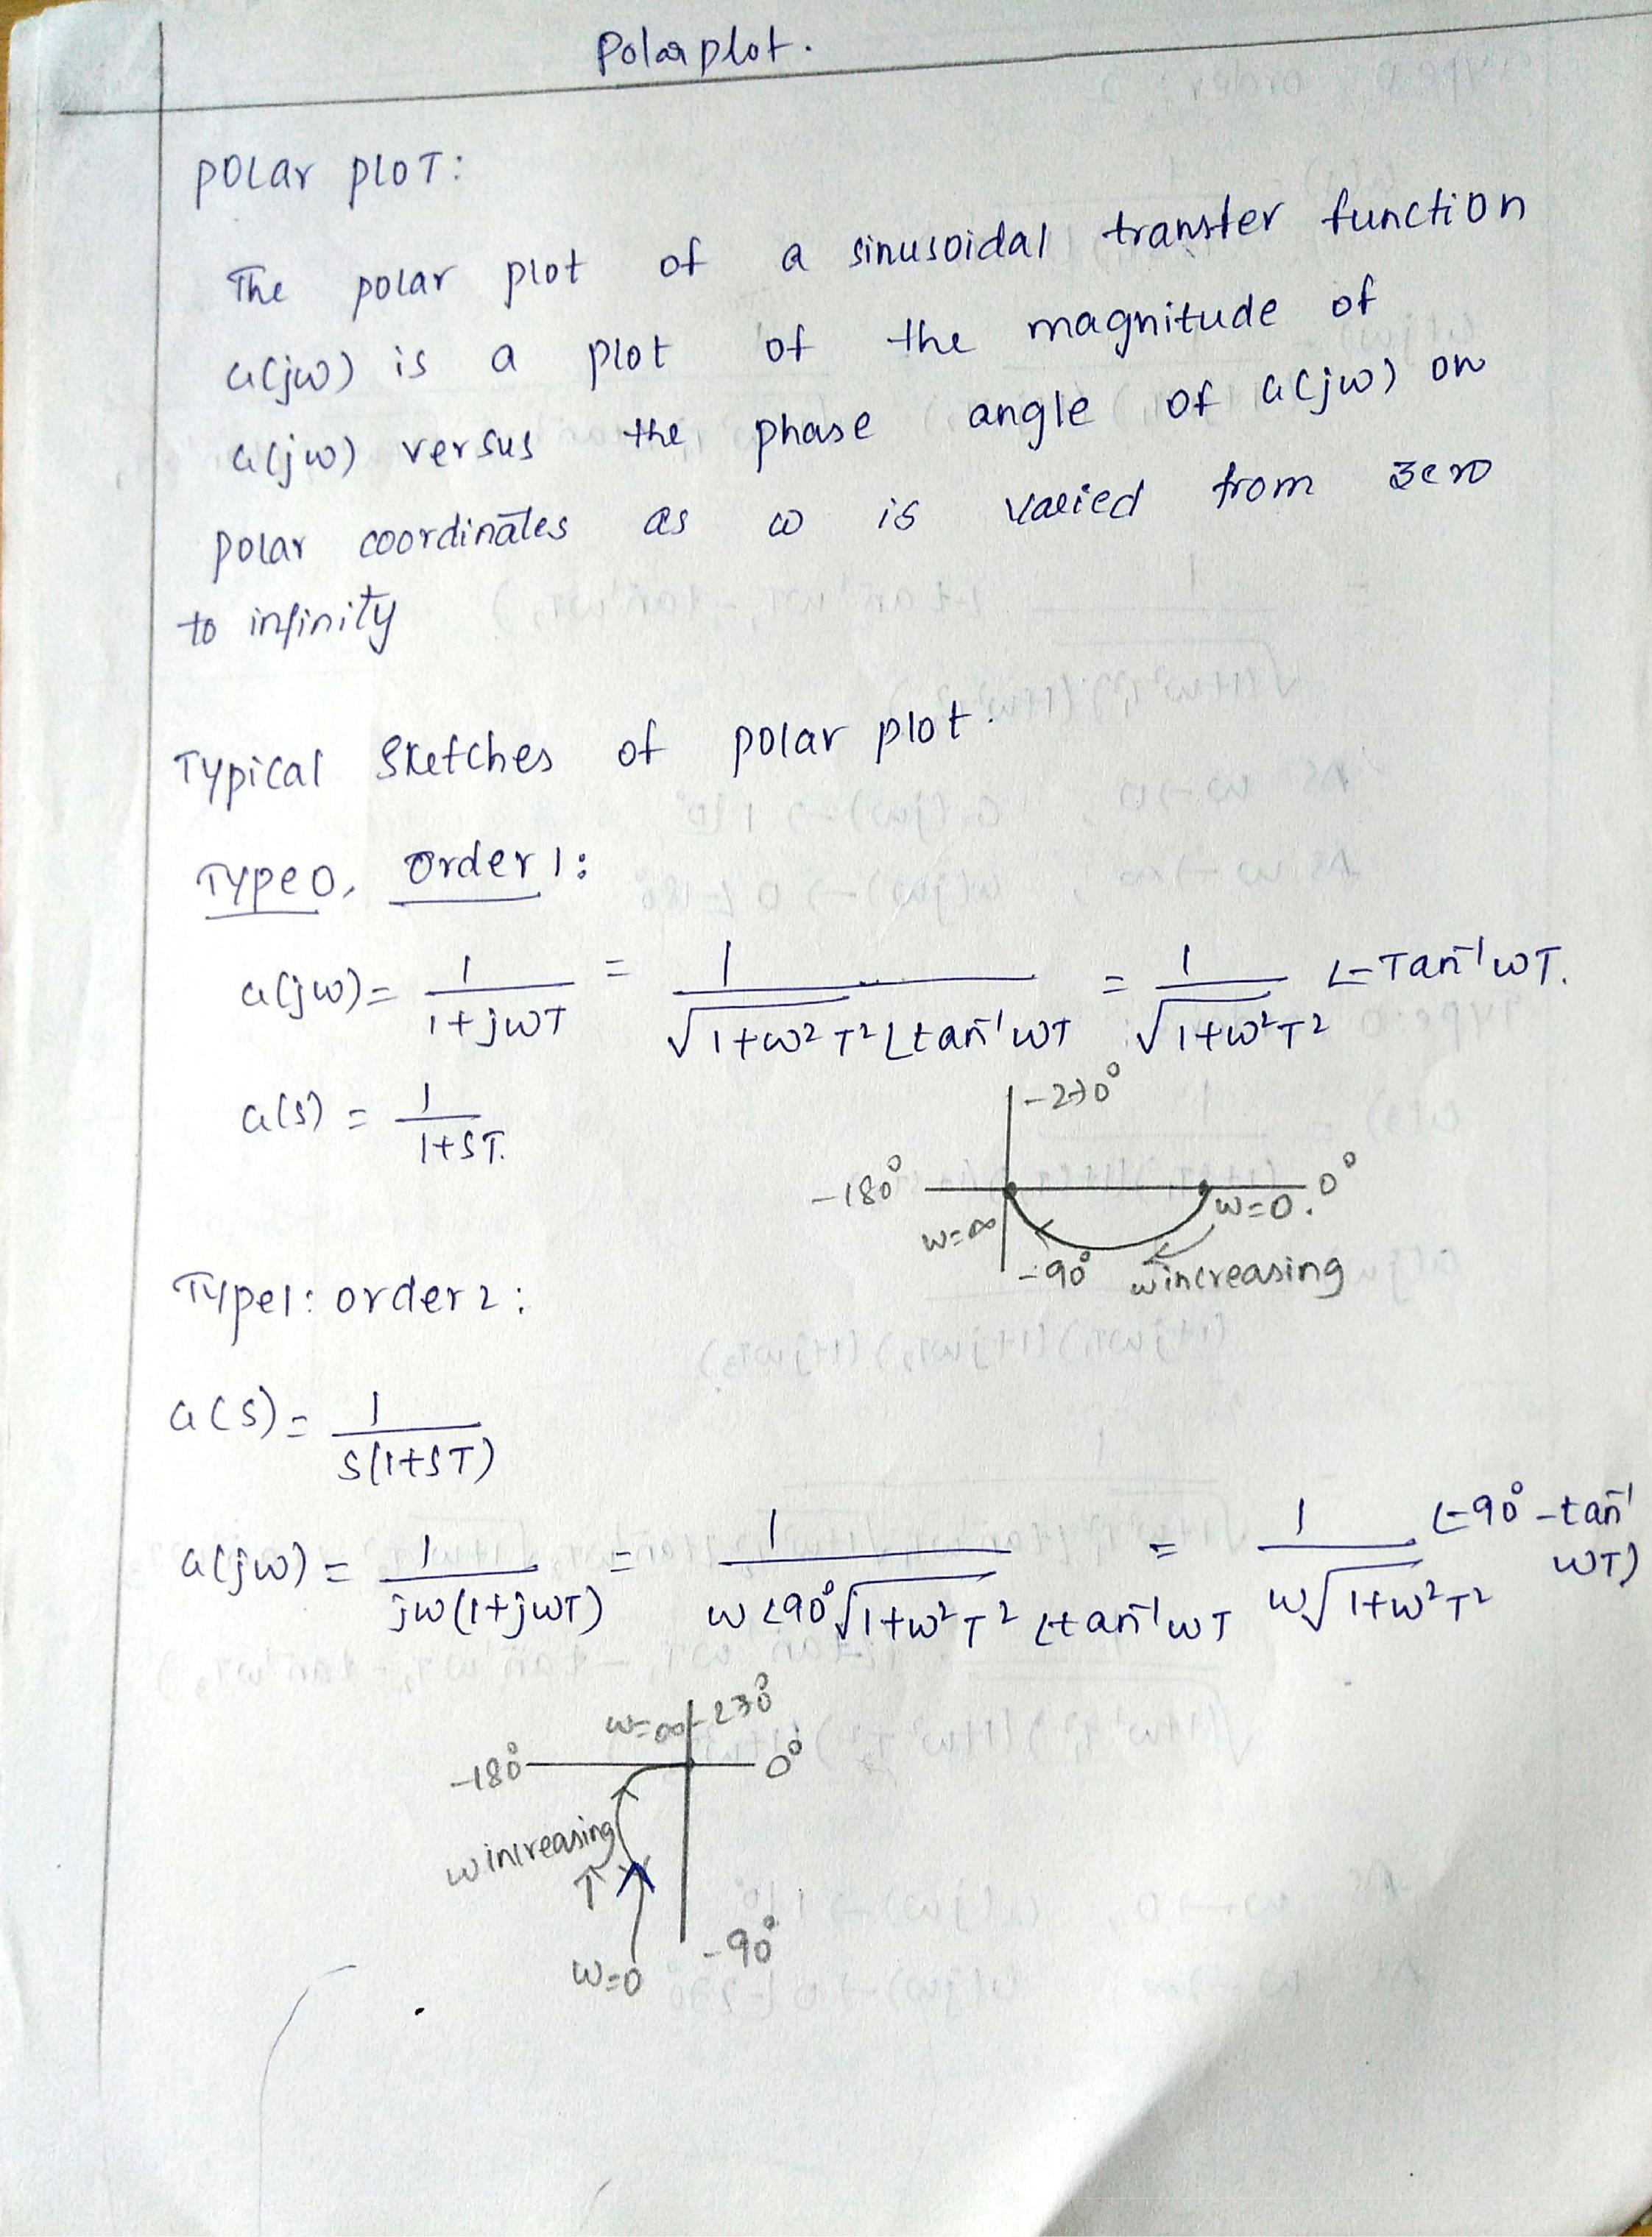 Polar plot.
POLAR PLOT:
The polar plot of a sinusoidal transfer function
G(jω) is a plot of the magnitude of
G(jω) versus the phase angle of G(jω) on
polar coordinates as ω is varied from zero
to infinity
Typical Sketches of polar plot.
Type 0, Order 1:
G(jω) = 1/(1+jωT) = 1/(√(1+ω²T²) ∠tan⁻¹ωT) = 1/√(1+ω²T²) ∠-Tan⁻¹ωT.
G(s) = 1/(1+ST.)
-270°
-180°
0°
ω=∞
ω=0.
-90°
ω increasing
Type1: order 2:
G(s) = 1/(S(1+ST))
G(jω) = 1/(jω(1+jωT)) = 1/(ω∠90° √(1+ω²T²) ∠tan⁻¹ωT) = 1/(ω√(1+ω²T²)) (∠-90°-tan⁻¹ωT)
ω=∞
-270°
-180°
0°
ω increasing
-90°
ω=0